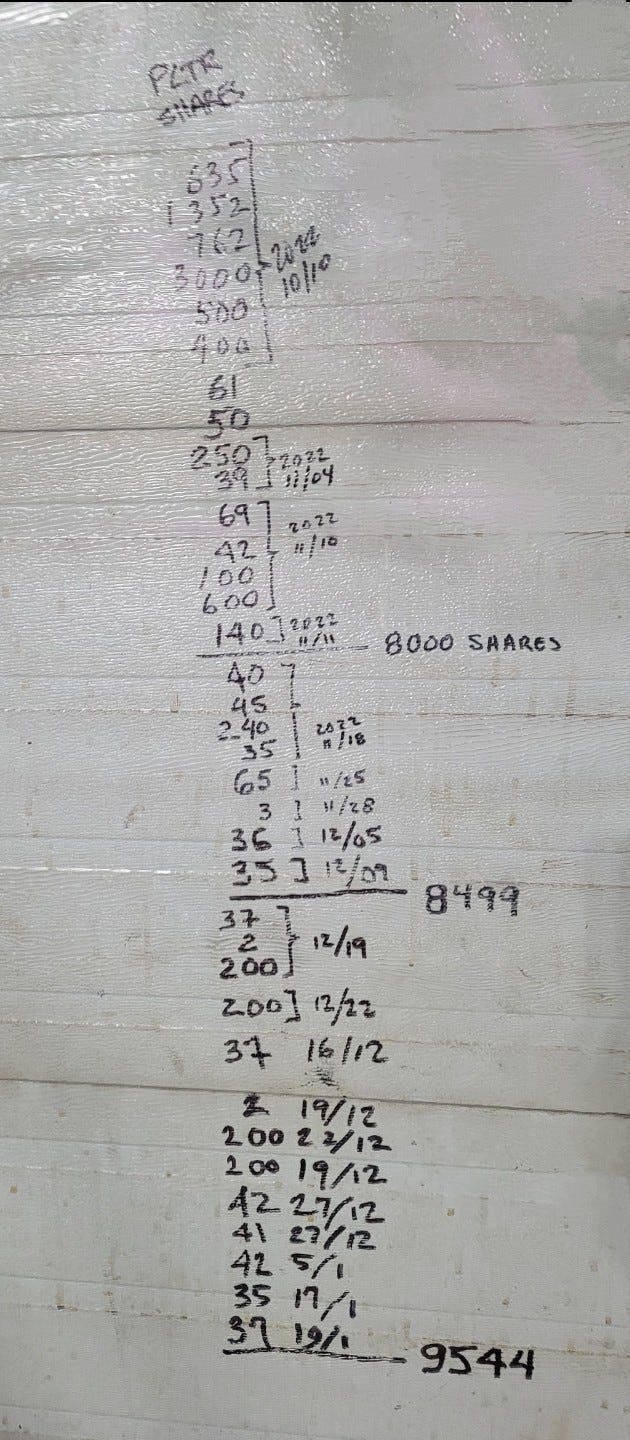 PLTR
SHARES
635
1352
762
3000 2022
10/10
500
400
61
50
250 2022
39 11/04
69 2022
42 11/10
100
600
140 2022
11/11
8000 SHARES
40
45
240 2022
35 11/18
65 11/25
3 11/28
36 12/05
35 12/09
8499
37
2 12/19
200
200 12/22
37 16/12
2 19/12
200 22/12
200 19/12
42 27/12
41 27/12
42 5/1
35 17/1
37 19/1
9544